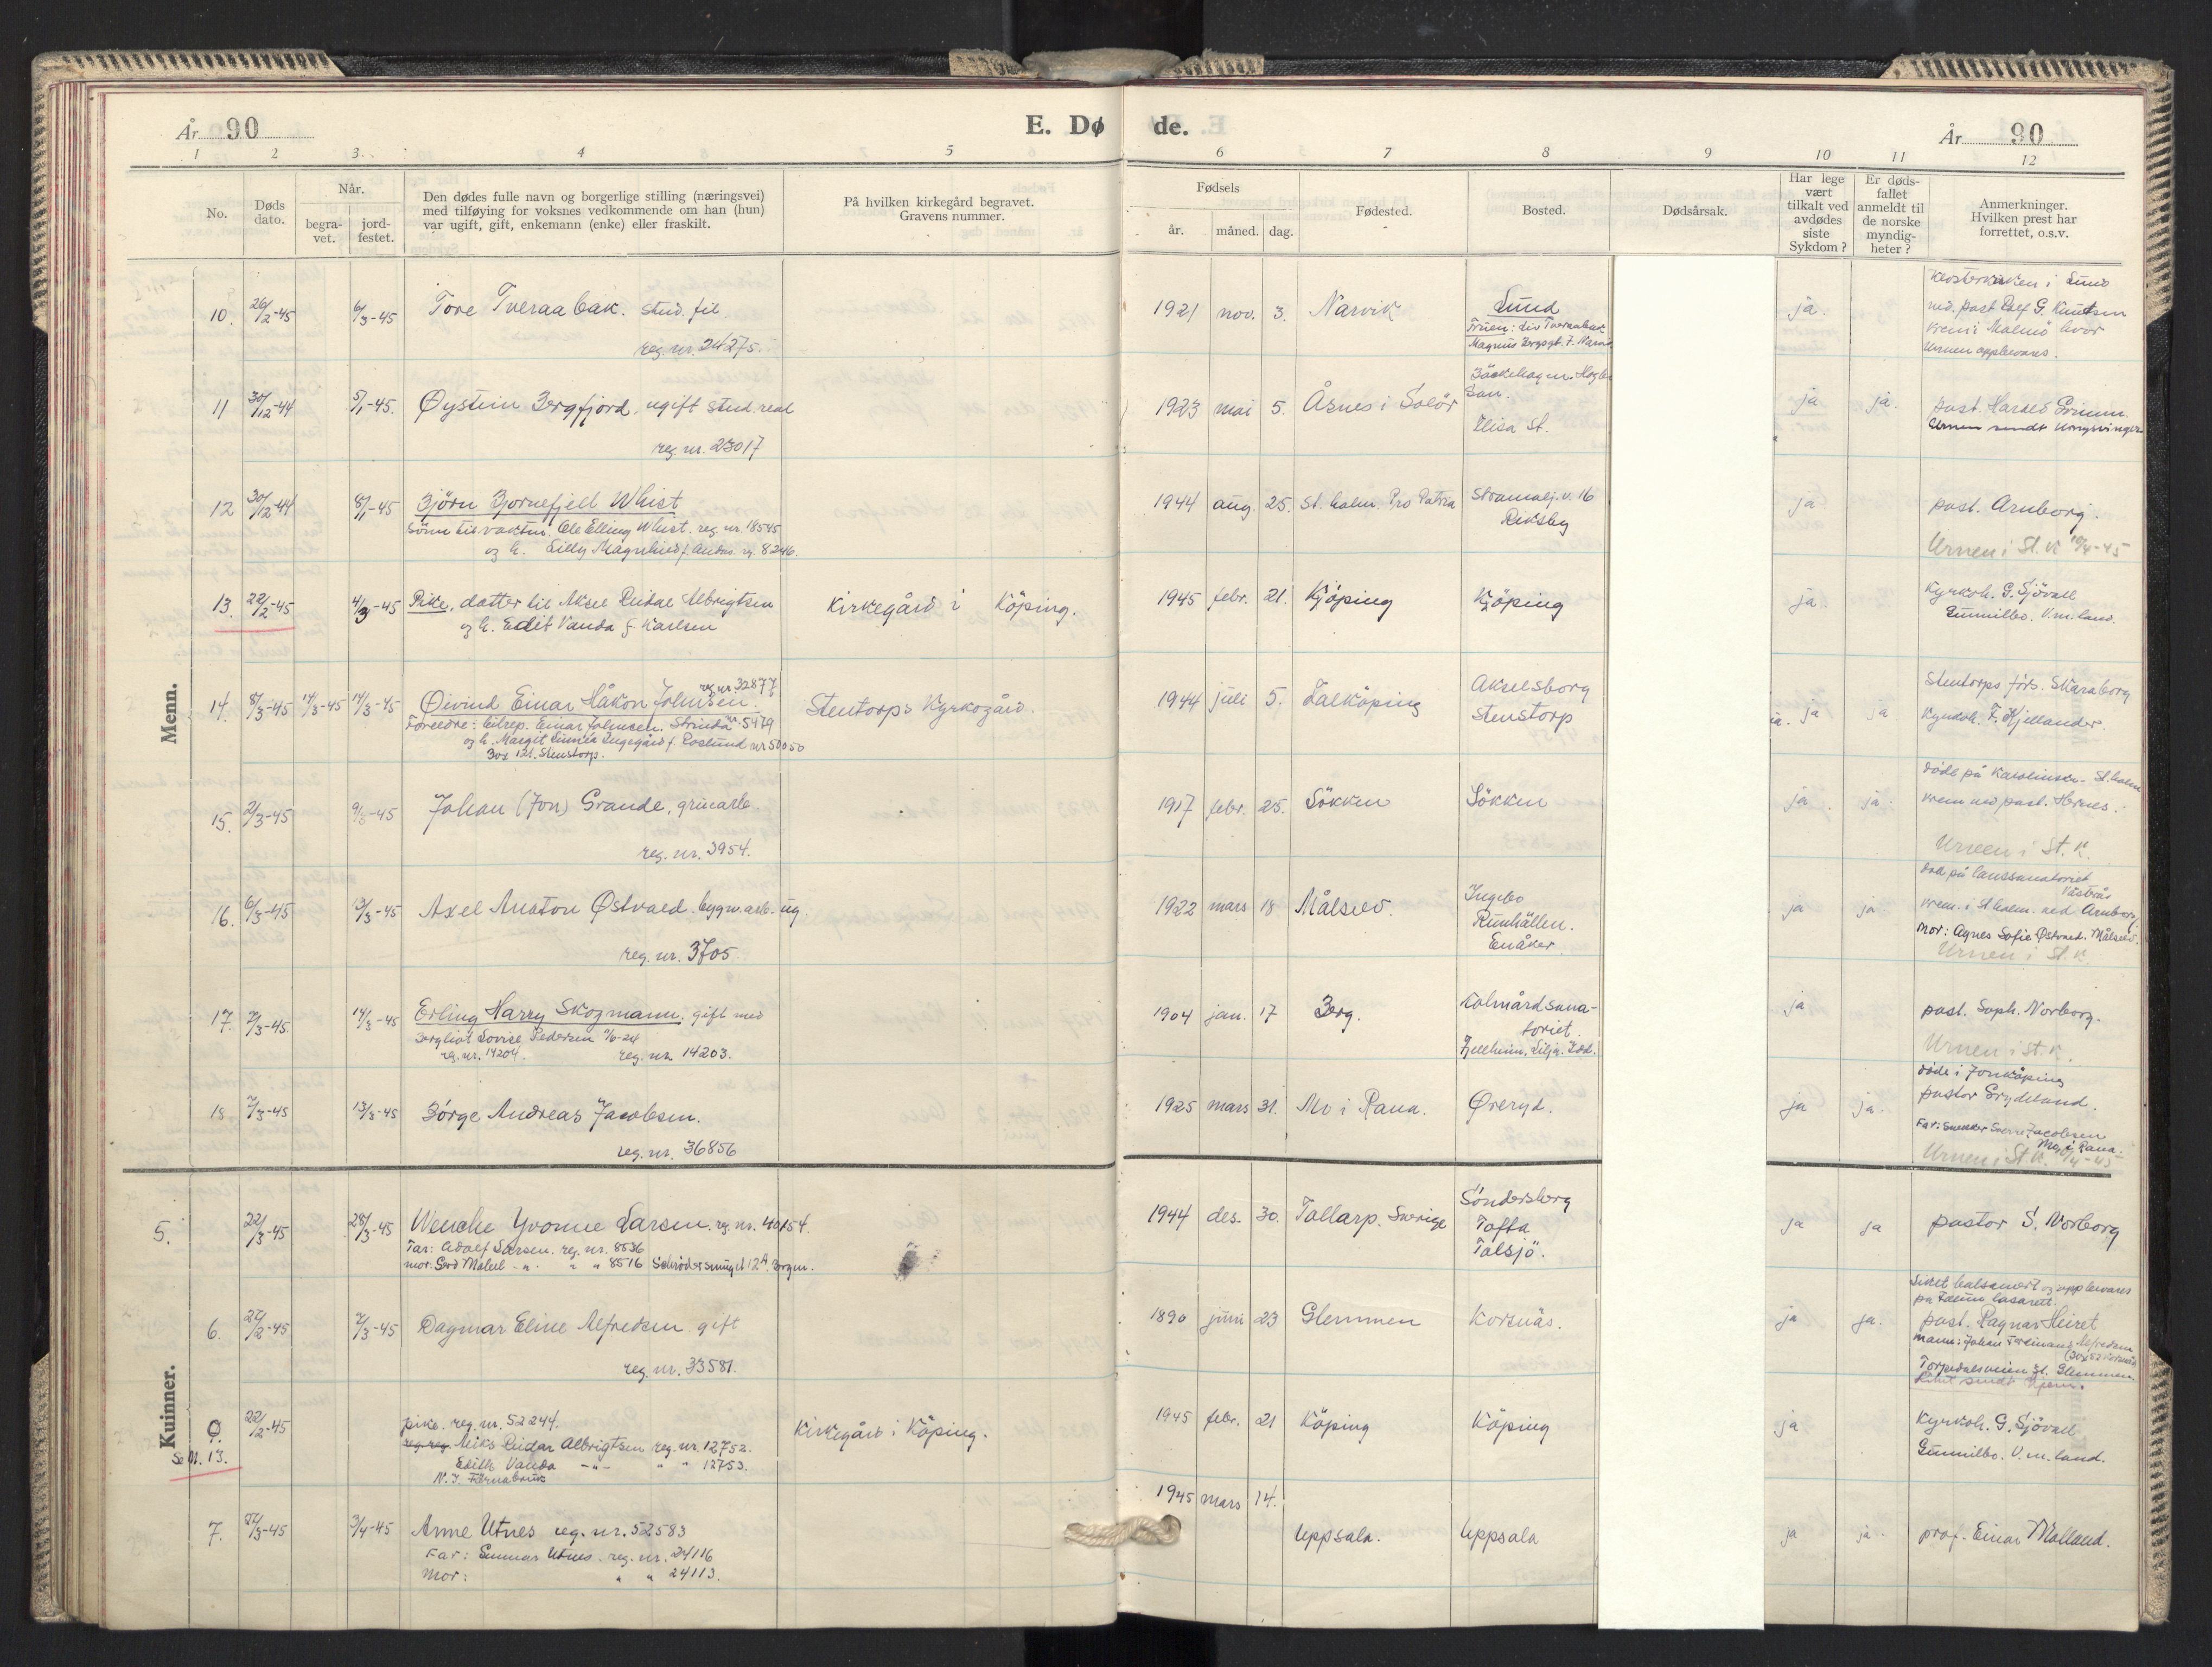 År 90
E. Dø de.
År 90
1 2 3 4 5 6 7 8 9 10 11 12
No.
Døds dato.
Når.
begra-vet.
jord-festet.
Den dødes fulle navn og borgerlige stilling (næringsvei)
med tilføying for voksnes vedkommende om han (hun)
var ugift, gift, enkemann (enke) eller fraskilt.
På hvilken kirkegård begravet.
Gravens nummer.
Fødsels
år. måned. dag.
Fødested.
Bosted.
Dødsårsak.
Har lege
vært
tilkalt ved
avdødes
siste
Sykdom?
Er døds-
fallet
anmeldt til
de norske
myndig-
heter?
Anmerkninger.
Hvilken prest har
forrettet, o.s.v.
Menn.
10. 26/2-45 6/3-45 Tore Tveraabak. stud. fil.
reg. nr. 24275.
1921 nov. 3. Narvik
Lund
Fruen: Liv Tveraabak
ja.
Klosterkirken i Lund
ved past Rolf G. Knutsen
krem i Malmö hvor
Urnen oppbevares.
11 30/12-44 5/1-45. Øystein Bergfjord, ugift stud. real
reg nr. 23017
1923 mai 5. Åsnes i Solör
ja ja.
past. Harald Grimm.
Urnen sendt Kongsvinger
12 30/12-44 8/1-45 Björn Bjornefjell Whist
Sönn til vaktm. Ole Elling Whist. reg nr 18545
og h. Lilly Magnhild f. Andas. rg. 8246.
1944 aug. 25. St. holm. Pro Patria
Stramalj. v. 16
Riksby
ja
past. Arnborg.
Urnen i St. K 10/4-45
13. 22/2-45 4/3-45 Pike, datter til Aksel Reidar Albrigtsen
og h. Edit Vanda f. Karlsen
Kirkegård i Köping.
1945 febr. 21. Kjöping Kjöping
ja.
Kyrkoh. G. Sjövall
Gunnilbo. V.m.land.
14. 8/3-45 14/3-45 14/3-45 Øivind Einar Håkon Johnsen. reg nr. 32877
Foreldre: bilrep. Einar Johnsen. Strinda nr. 5479
og h. Margit Linnéa Ingegärd f. Roslund nr 50050
Box 121. Stenstorp.
Stentorps Kyrkogård.
1944 juli 5. Falköping
Akselsborg
Stenstorp
ja ja
Stentorps förs. Skaraborg
Kyrkoh. F. Kjellander.
15. 2/3-45 9/3-45 Johan (Jon) Grande, gruearb.
reg. nr. 3954.
1917 febr. 25. Lökken Lökken
ja. ja.
döde på Karolinska - St. holm
krem ved past. Hernes.
Urnen i St. K.
16. 6/3-45 13/3-45 Axel Anaton Østvald. bygn. arb. ug.
reg. nr. 3705
1922 mars 18 Målselv.
Ingebo
Runhällen.
Enåker
ja ja.
död på lanssanatoriet
Västerås
krem. i St. holm. ved Arnborg
Mor: Agnes Sofie Østvald. Målselv.
Urnen i St. K.
17. 7/3-45. 14/3-45 Erling Harry Skogmann. gift med
Bergliot Lovise Pedersen
rg. nr. 14204. reg. nr. 14203.
1904 jan. 17 Berg.
Kolmårdsana-
toriet.
ja
past. Soph. Norborg.
Urnen i St. K.
18 7/3-45 13/3-45 Börge Andreas Jacobsen.
reg. nr. 36856
1925 mars 31. Mo i Rana. Øveryd.
ja ja.
döde i Jonköping
pastor Grydeland.
Far: Snekker Sverre Jacobsen
Mo i Rana.
Urnen i St K. 10/4-45
Kvinner.
5. 22/3-45 28/3-45 Wenche Yvonne Larsen. rg. nr. 40154.
Far: Adolf Larsen. rg. nr. 8536
mor: Gerd Malul -"- " " 8516 Schrödersmuget 12A. Bergen.
1944 des. 30. Tollarp. Sverige
Söndersborg
Tofta
Talsjö.
ja ja
pastor S. Norborg
6. 27/2-45 7/3-45 Dagmar Eline Alfredsen. gift
reg. nr. 33581.
1890 juni 23 Glemmen Korsnäs.
ja ja.
Liket balsamert og oppbevares
på Falun lasarett.
past. Ragnar Heiret
mann: Johan Ferdinand Alfredsen
Torpedalsveien 31. Glemmen
Liket sendt hjem.
Se M. 13. 22/2-45 pike. reg nr. 52244.
Aiks Reidar Albrigtsen reg. nr. 12752.
Edith Vanda -"- " " 12753.
N. J. Färnabruk
Kirkegård i Köping.
1945 febr. 21 Köping Köping
ja
Kyrkoh. G. Sjövall
Gunnilbo. V.m.land.
7. 27/3-45 3/4-45 Anne Utnes reg. nr. 52583
Far: Gunnar Utnes. reg. nr. 24116
Mor: " " 24113.
1945 mars 14. Uppsala. Uppsala
ja ja.
prof. Einar Molland.